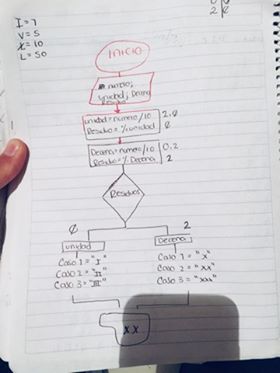 I = 1
V = 5
X = 10
L = 50
INICIO
numero;
unidad; Decena
Residuo
unidad = numero / 10
Residuo = % unidad
2.0
0
Decena = numero / 10
Residuo = % Decena
0.2
2
Residuos
0
2
unidad
Decena
Caso 1 = "I"
Caso 2 = "II"
Caso 3 = "III"
Caso 1 = "X"
Caso 2 = "XX"
Caso 3 = "XXX"
XX